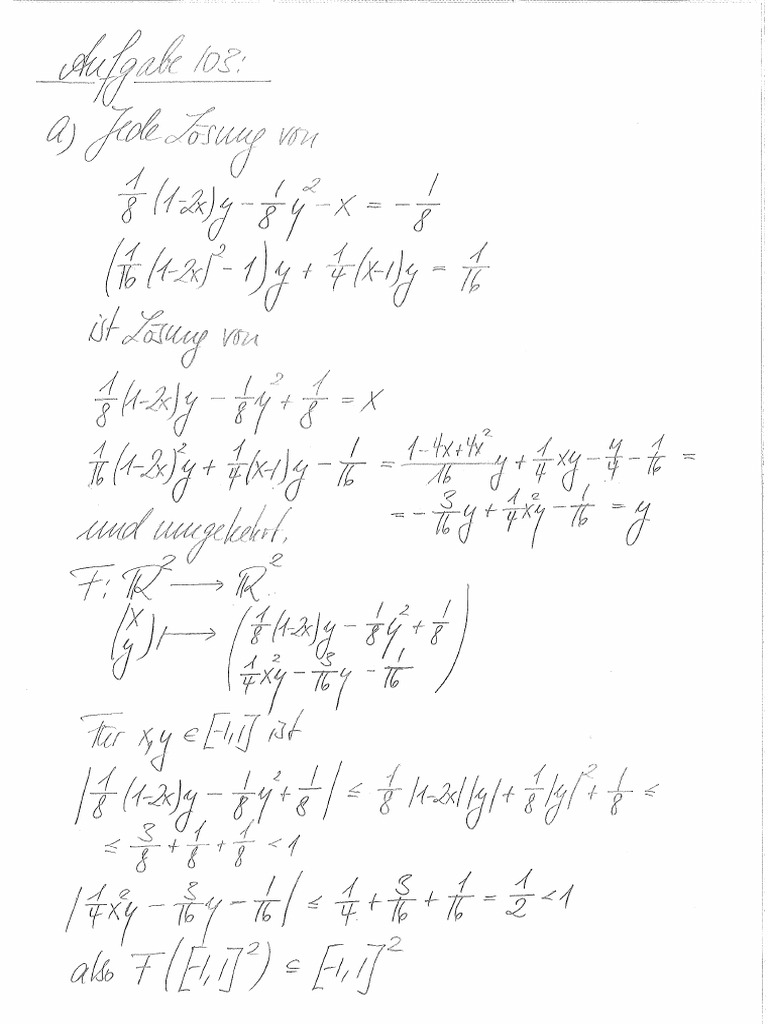 Aufgabe 103:
a) Jede Lösung von
1/8 (1-2x)y - 1/8 y² - x = -1/8
(1/16 (1-2x)² - 1)y + 1/4 (x-1)y = 1/16
ist Lösung von
1/8 (1-2x)y - 1/8 y² + 1/8 = x
1/16 (1-2x)² y + 1/4 (x-1)y - 1/16 = (1-4x+4x²)/16 y + 1/4 xy - y/4 - 1/16 =
= -3/16 y + 1/4 x²y - 1/16 = y
und umgekehrt.
F: ℝ² ⟶ ℝ²
(x y) ⟼ (1/8 (1-2x)y - 1/8 y² + 1/8
1/4 x²y - 3/16 y - 1/16)
Für x,y ∈ [-1,1] ist
|1/8 (1-2x)y - 1/8 y² + 1/8| ≤ 1/8 |1-2x||y| + 1/8 |y|² + 1/8 ≤
≤ 3/8 + 1/8 + 1/8 < 1
|1/4 x²y - 3/16 y - 1/16| ≤ 1/4 + 3/16 + 1/16 = 1/2 < 1
also F([-1,1]²) ⊆ [-1,1]²